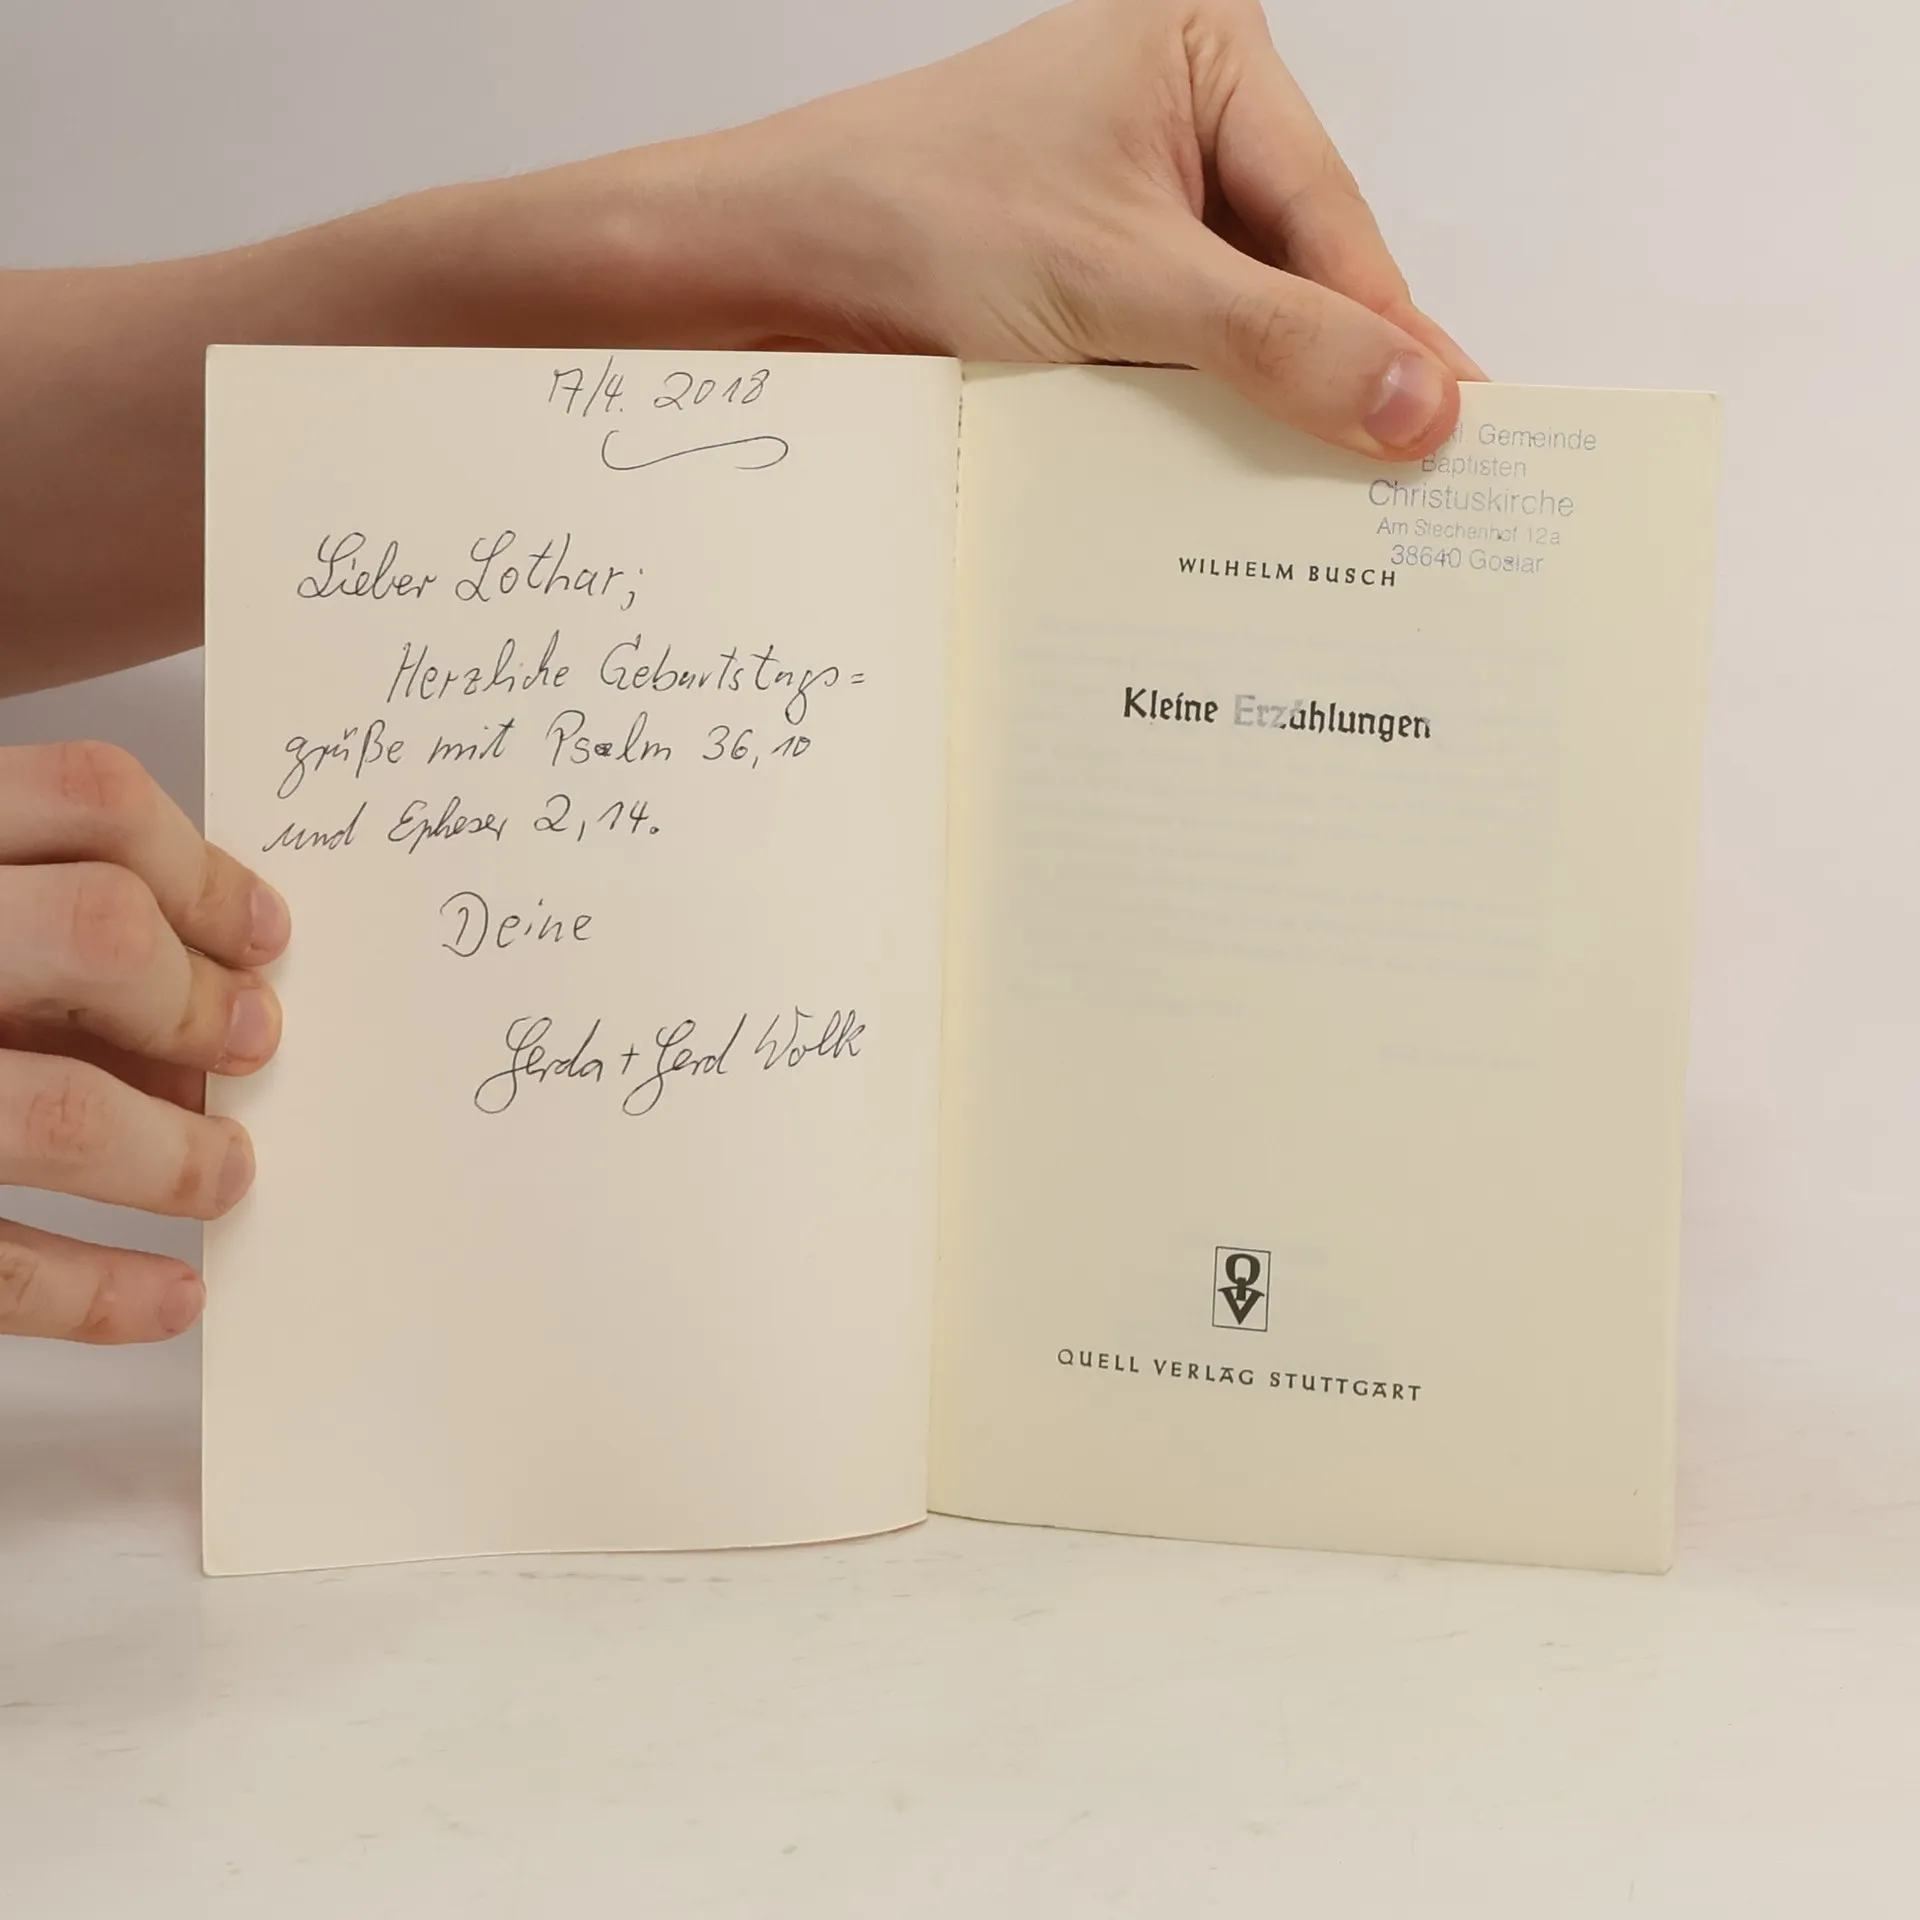 17/4. 2018
Lieber Lothar;
Herzliche Geburtstags=
grüße mit Psalm 36,10
und Epheser 2,14.
Deine
Gerda + Gerd Wolk
kl. Gemeinde
Baptisten
Christuskirche
Am Siechenhof 12a
38640 Goslar
WILHELM BUSCH
Kleine Erzählungen
QV
QUELL VERLAG STUTTGART